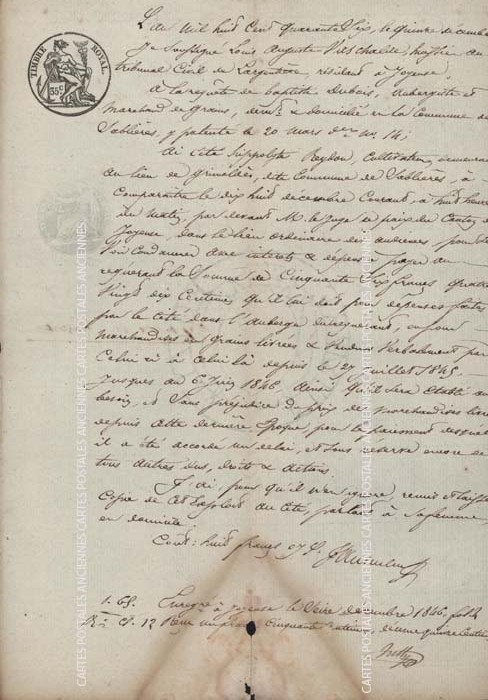 TIMBRE ROYAL.
35c
L'an mil huit cent quarante six, le quinze décembre
Je soussigné Louis Auguste Deschalelle, huissier au
tribunal Civil de Largentière, résidant à Joyeuse,
A la requête de baptiste Dubois, aubergiste et
marchand de grains, demt & domicilié en la Commune de
Sablières, y patenté le 20 mars dern no. 14;
Ai cité hippolyte Reydon, cultivateur, demeurant
au lieu de dite Commune de Sablières, à
Comparaitre le dix huit décembre Courant, à huit heures
du matin, par devant M. le juge de paix du Canton de
Joyeuse, dans le lieu ordinaire des audiences, pour
S'voir Condamner avec intérêts & dépens à payer au
requérant la Somme de Cinquante Six francs quatre
Vingt dix Centimes qu'il lui doit pour dépenses faites
par le Cité dans l'auberge du requérant, ou pour
marchandises en grains livrées & vendues Verbalement par
Celui ci à Celui là depuis le 27 juillet 1845,
Jusques au 6 juin 1846, Ainsi qu'il sera établi au
besoin, et Sans préjudice du prix de marchandises
depuis cette dernière Epoque, pour le paiement desquelles
il a été accordé un délai, et sous réserve encore de
tous autres dus, droits & actions.
Et ai, pour qu'il n'en ignore, remis et laissé
Copie de cet Exploit au cité, parlant à sa femme,
en domicile.
Coût: huit francs
1. 65. Enregré à Joyeuse le Seize décembre 1846, fol.
C. 12 Reçu un franc cinquante centimes décime quinze Centimes
CARTES POSTALES ANCIENNES CARTES POSTALES ANCIENNES
CARTES POSTALES ANCIENNES CARTES POSTALES ANCIENNES